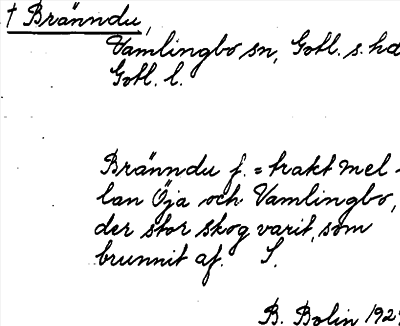 † Bränndu,
Vamlingbo sn, Gotl. s. hd
Gotl. l.
Bränndu f. = trakt mel-
lan Öja och Vamlingbo,
der stor skog varit, som
brunnit af. S.
B. Bolin